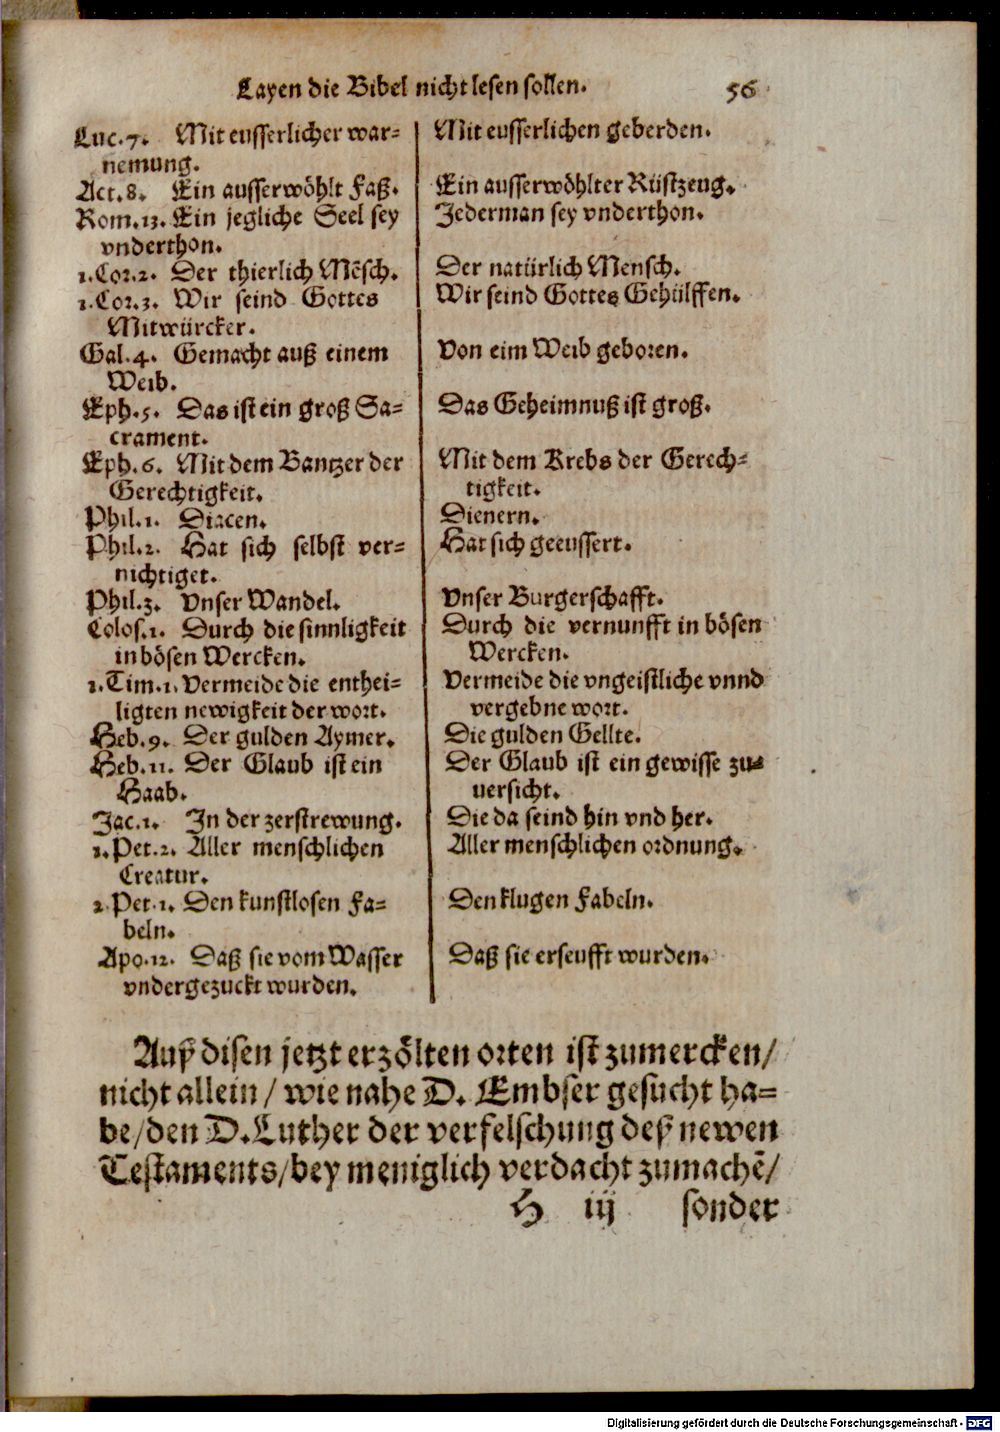 Layen die Bibel nicht lesen sollen. 56
Luc. 7. Mit eusserlicher war=
nemung.
Mit eusserlichen geberden.
Act. 8. Ein ausserwöhlt Faß.
Ein ausserwöhlter Rüstzeug.
Rom. 13. Ein jegliche Seel sey
vnderthon.
Jederman sey vnderthon.
1. Cor. 2. Der thierlich Mẽsch.
Der natürlich Mensch.
1. Cor. 3. Wir seind Gottes
Mitwürcker.
Wir seind Gottes Gehülffen.
Gal. 4. Gemacht auß einem
Weib.
Von eim Weib geboren.
Eph. 5. Das ist ein groß Sa=
crament.
Das Geheimnuß ist groß.
Eph. 6. Mit dem Bantzer der
Gerechtigkeit.
Mit dem Krebs der Gerech=
tigkeit.
Phil. 1. Diacen.
Dienern.
Phil. 2. Hat sich selbst ver=
nichtiget.
Hat sich geeussert.
Phil. 3. Vnser Wandel.
Vnser Burgerschafft.
Colos. 1. Durch die sinnligkeit
in bösen Wercken.
Durch die vernunfft in bösen
Wercken.
1. Tim. 1. Vermeide die enthei=
ligten newigkeit der wort.
Vermeide die vngeistliche vnnd
vergebne wort.
Heb. 9. Der gulden Aymer.
Die gulden Gellte.
Heb. 11. Der Glaub ist ein
Haab.
Der Glaub ist ein gewisse zu=
uersicht.
Jac. 1. In der zerstrewung.
Die da seind hin vnd her.
1. Pet. 2. Aller menschlichen
Creatur.
Aller menschlichen ordnung.
2. Pet. 1. Den kunstlosen Fa=
beln.
Den klugen Fabeln.
Apo. 12. Daß sie vom Wasser
vndergezuckt wurden.
Daß sie erseufft wurden.
Auß disen jetzt erzölten orten ist zumercken/
nicht allein / wie nahe D. Embser gesucht ha=
be/den D. Luther der verfelschung deß newen
Testaments/bey meniglich verdacht zumachẽ/
H iij sonder
Digitalisierung gefördert durch die Deutsche Forschungsgemeinschaft - DFG